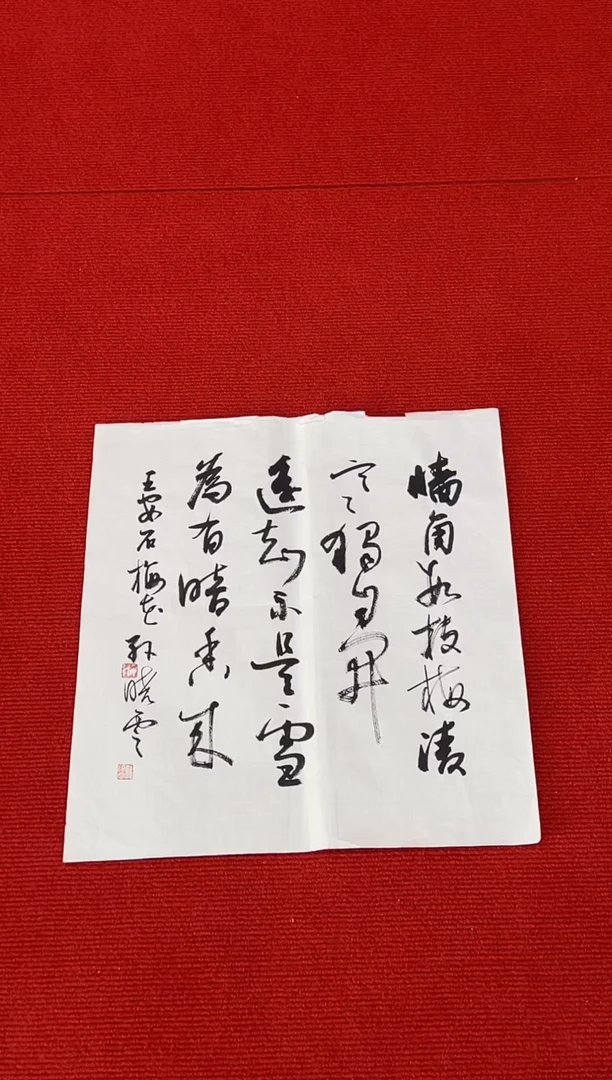 墙角数枝梅凌
寒独自开
遥知不是雪
为有暗香来
王安石梅花 孙晓云